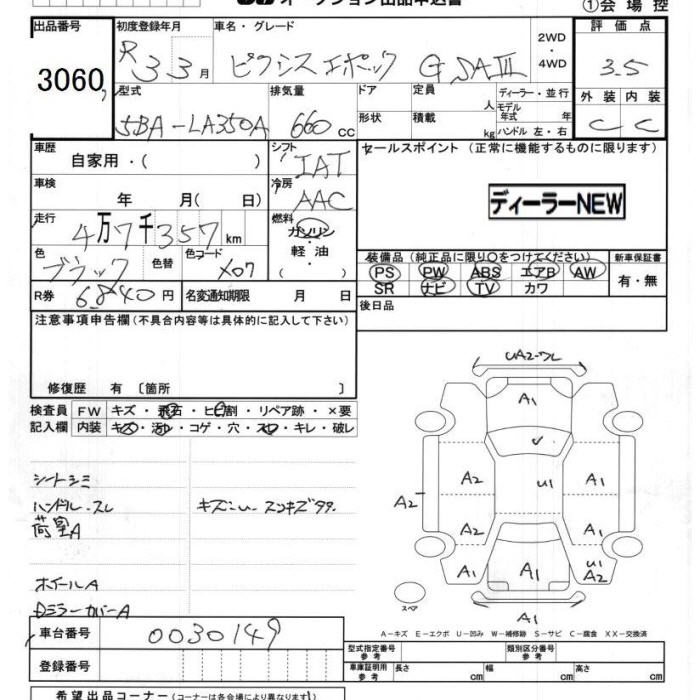 オークション出品申込書
①会場控
出品番号 初度登録年月 車名・グレード 2WD・4WD 評価点
3060 R 3 3月 ピクシス エポック G SAⅢ 3.5
型式 排気量 ドア 定員 人 ディーラー・並行 外装 内装
モデル年式 年
5BA-LA350A 660cc 形状 積載 kg ハンドル 左・右 C C
車歴 自家用・( ) シフト IAT セールスポイント (正常に機能するものに限ります)
車検 年 月(日) 冷房 AAC
ディーラーNEW
走行 4万7千357km 燃料 ガソリン・軽油・( )
色 ブラック 色替 色コード X07
装備品 (純正品に限り○をつけてください) 新車保証書
PS PW ABS エアB AW 有・無
SR ナビ TV カワ
R券 6840円 名変通知期限 月 日
後日品
注意事項申告欄 (不具合内容等は具体的に記入して下さい)
修復歴 有 〔箇所 〕
検査員記入欄 FW キズ・飛石・ヒビ割・リペア跡・×要
内装 キズ・汚れ・コゲ・穴・スレ・キレ・破レ
シートシミ
ハンドル・スレ キズ・U スンキズ99.
荷室A
ホイールA
DミラーカバーA
UA2-ワレ
A1
A2 U1 A1
A2 A2 A1
A1 A1 U1 A2
スペア A1
A-キズ E-エクボ U-凹み W-補修跡 S-サビ C-腐食 XX-交換済
車台番号 0030149 型式指定番号 参考 類別区分番号 参考
登録番号 車庫証明用 参考 長さ cm 幅 cm 高さ cm
希望出品コーナー (コーナー名は各会場により異なります)